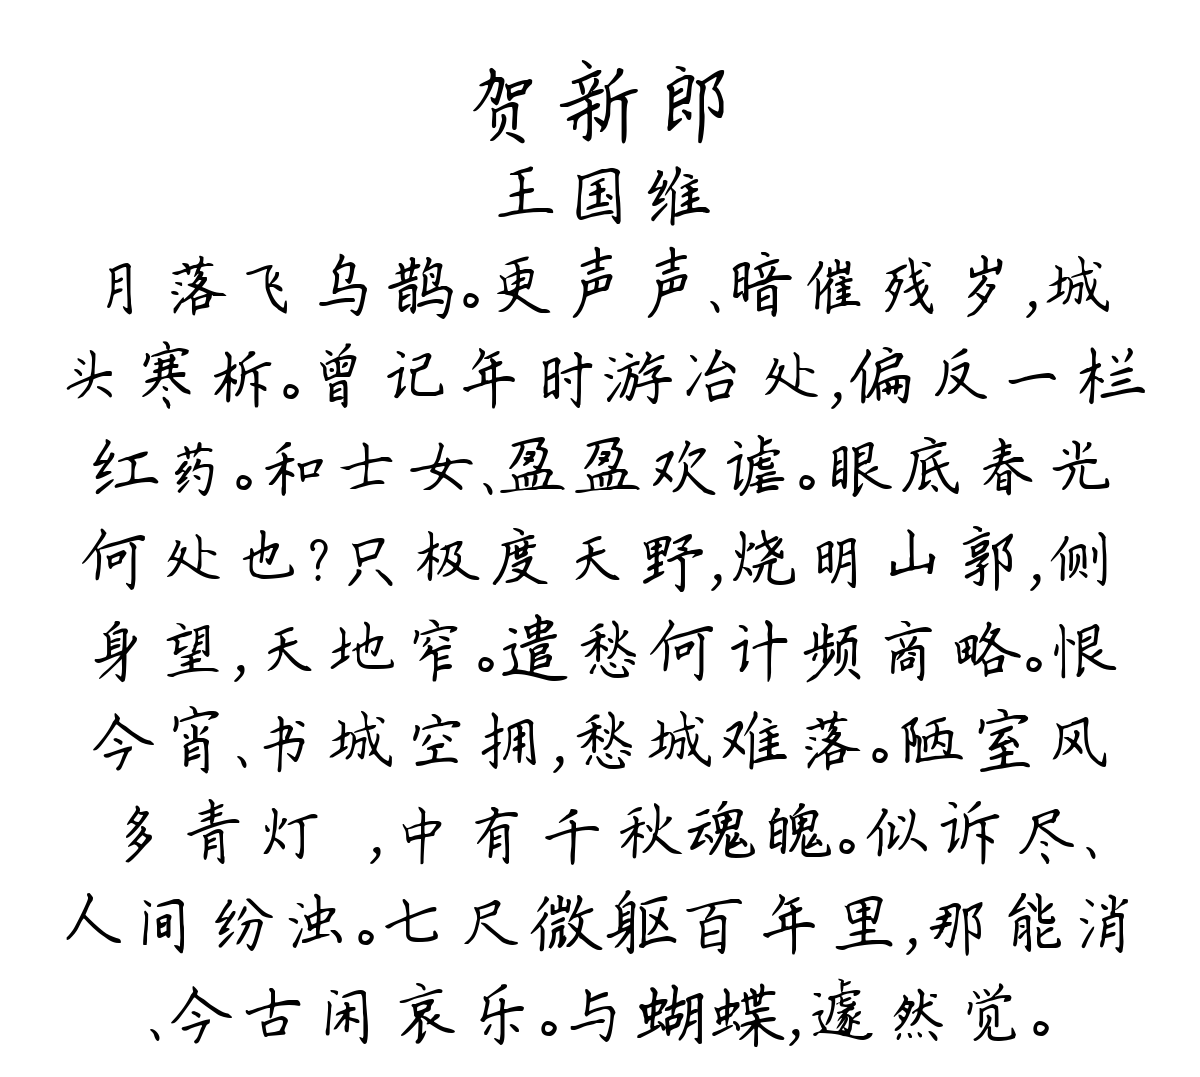 贺新郎
王国维
月落飞乌鹊。更声声、暗催残岁,城
头寒柝。曾记年时游冶处,偏反一栏
红药。和士女、盈盈欢谑。眼底春光
何处也?只极度天野,烧明山郭,侧
身望,天地窄。遣愁何计频商略。恨
今宵、书城空拥,愁城难落。陋室风
多青灯 ,中有千秋魂魄。似诉尽、
人间纷浊。七尺微躯百年里,那能消
、今古闲哀乐。与蝴蝶,遽然觉。